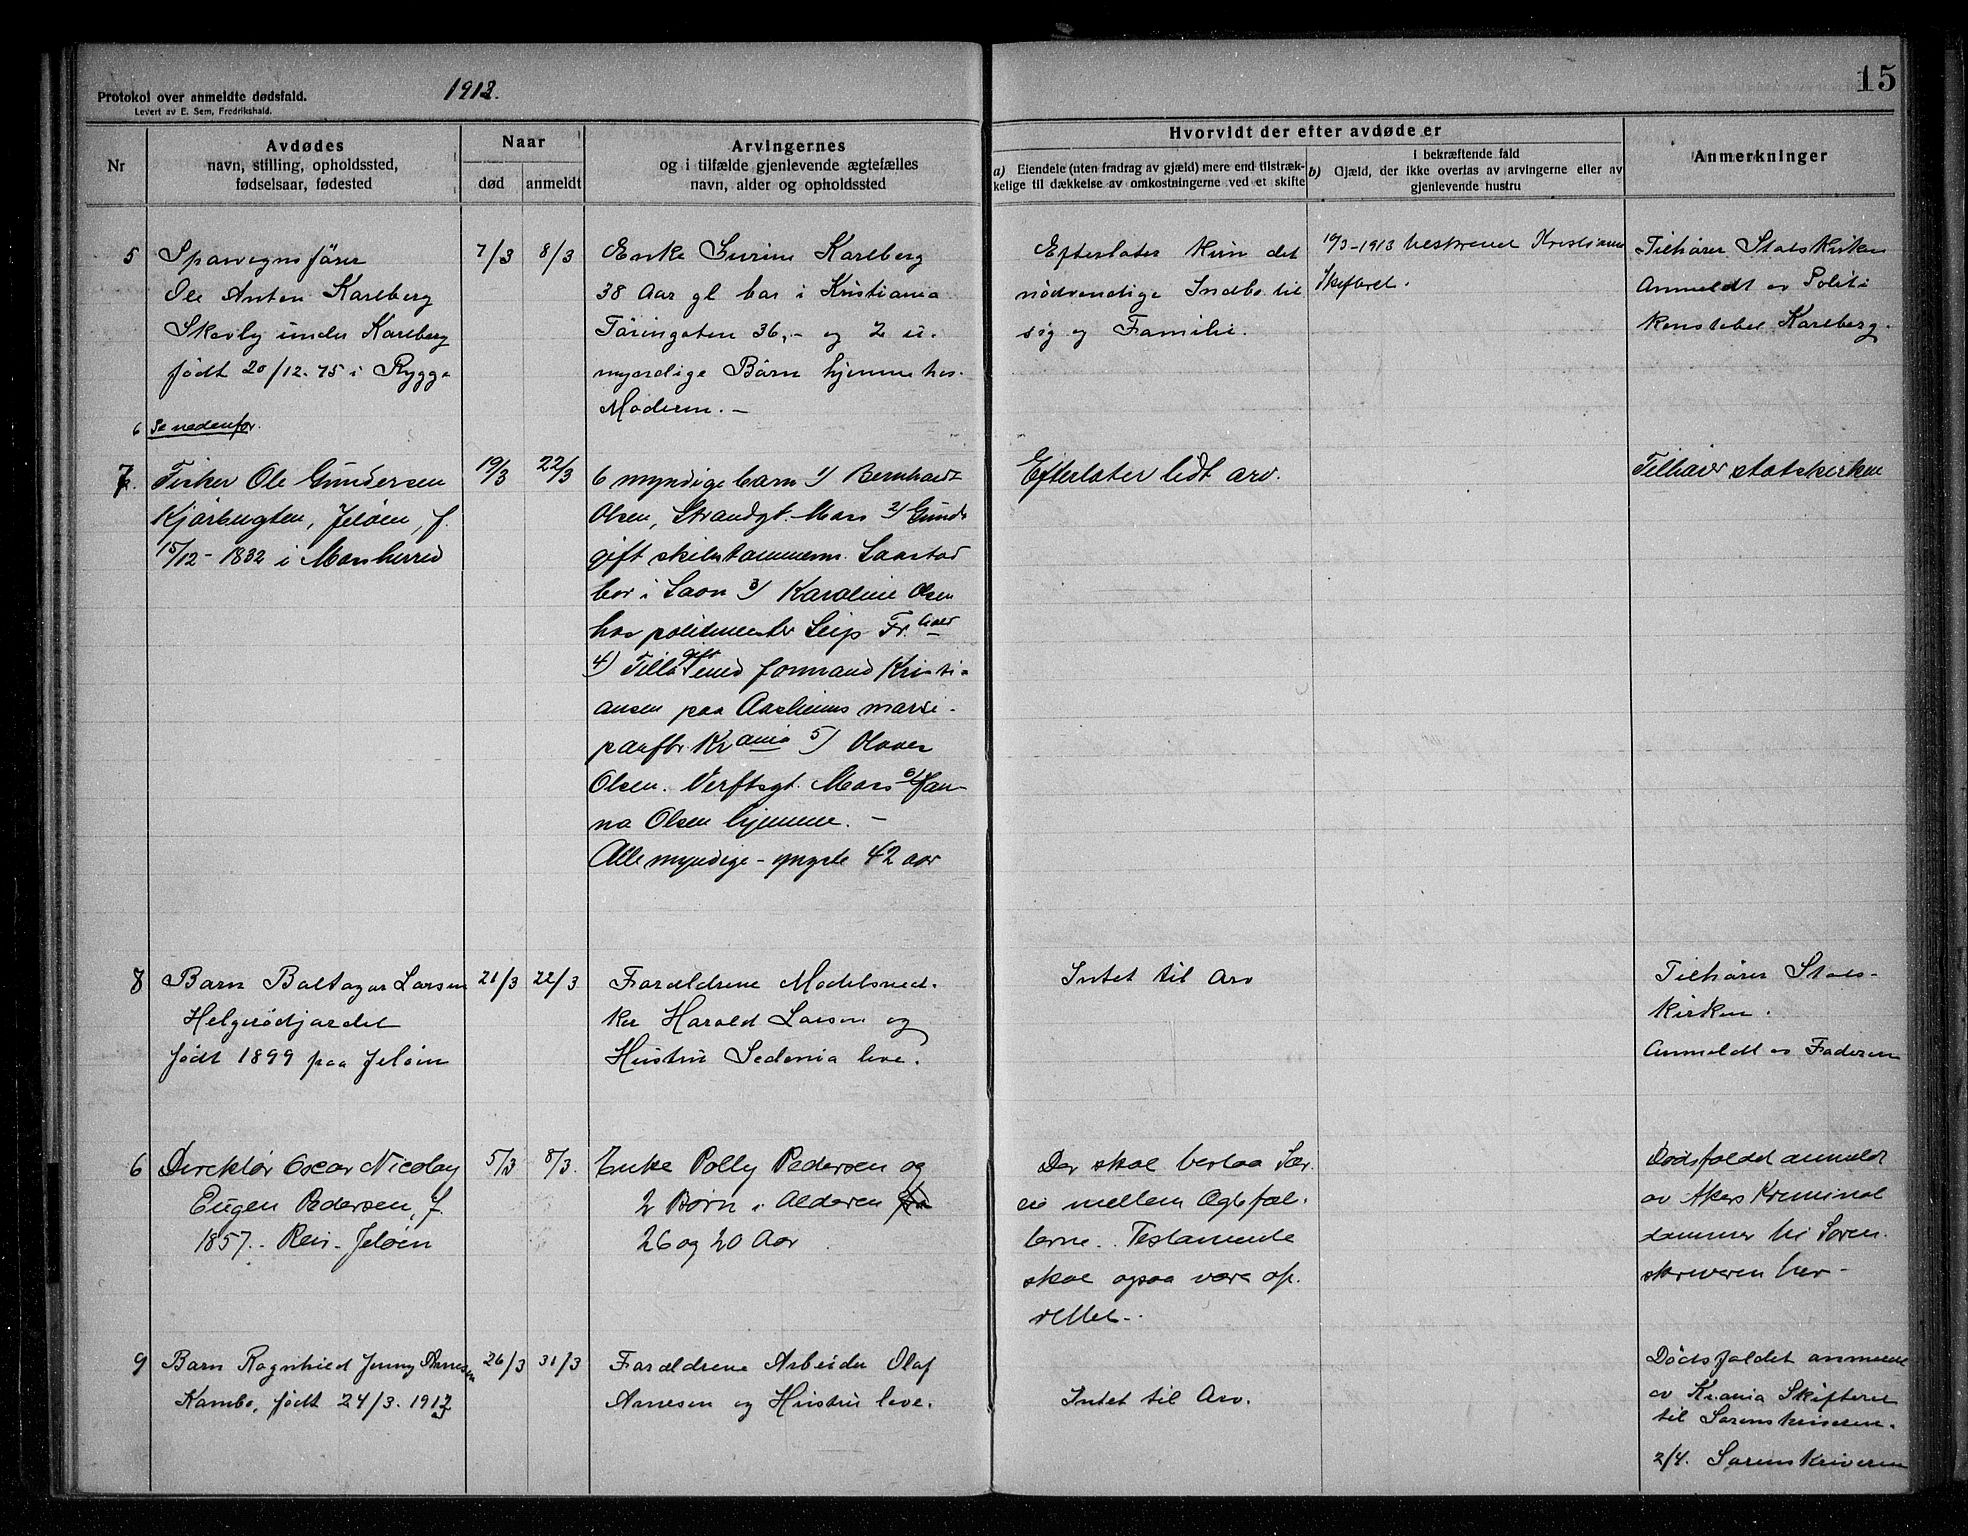 Protokol over anmeldte dødsfald.
Levert av E. Sem, Fredrikshald.
1913.
15
Nr
Avdødes
navn, stilling, opholdssted,
fødselsaar, fødested
Naar
død
anmeldt
Arvingernes
og i tilfælde gjenlevende ægtefælles
navn, alder og opholdssted
Hvorvidt der efter avdøde er
a) Eiendele (uten fradrag av gjæld) mere end tilstræk-
kelige til dækkelse av omkostningerne ved et skifte
I bekræftende fald
b) Gjæld, der ikke overtas av arvingerne eller av
gjenlevende hustru
Anmerkninger
5
Sporvognsfører
Ole Anton Karlberg
Skovly under Karlberg
født 20/12-75 i Rygge
7/3
8/3
Enke Gurine Karlberg
38 Aar gl bor i Kristiania
36,- og 2 u.
myndige Børn hjemme hos
Moderen. -
Efterlater kun det
nødvendige Indbo til
sig og Familie.
19/3-1913 Kristiania
Skifteret.
Tilhører Statskirken
Anmeldt av Politi
konstabel Karlberg.
6 Se nedenfor.
7.
Fisker Ole Gundersen
Kjørbugten, Jeløen, f.
15/12-1832 i Mossherred
19/3
22/3
6 myndige barn 1) Bernhard
Olsen, Strandgt. Moss 2) Gunda
gift Saastad
bor i Saon 3) Karoline Olsen
hos politimester Leip Fr.hald
4) Tilla gift med formand Kristi-
ansen paa marsi-
panfbr. Krania 5) Olaves
Olsen. Verftsgt. Moss 6) Jan-
na Olsen hjemme. -
Alle myndige - yngste 42 aar
Efterlater lidt arv.
Tilhører statskirken
8
Barn Baltazar Larsen
Helgerødjordet
født 1899 paa Jeløen
21/3
22/3
Forældrene Møbelsned-
ker Harald Larsen og
Hustru Sedenia leve.
Intet til Arv
Tilhører Stats-
kirken.
Anmeldt av Faderen
6
Direktør Oscar Nicolay
Eugen Pedersen, f.
1857. - Reir - Jeløen
5/3
8/3.
Enke Polly Pedersen og
2 Børn i Alderen fra
26 og 20 Aar
Der skal bestaa Sær-
eie mellem Ægtefæl-
lerne. Testamente
skal ogsaa være op-
rettet. -
Dødsfaldet anmeldt
av Akers Kriminal
dommer til Soren-
skriveren her -
9
Barn Ragnhild Jenny Arnesen
Kambo, født 24/3. 1913
26/3
31/3
Forældrene Arbeider Olaf
Arnesen og Hustru leve.
Intet til Arv.
Dødsfaldet anmeldt
av Krania Skifteret
til Sorenskriveren.
2/4. Sorenskriveren